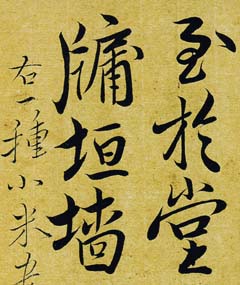 至於堂
牖垣墙
右一種小米书